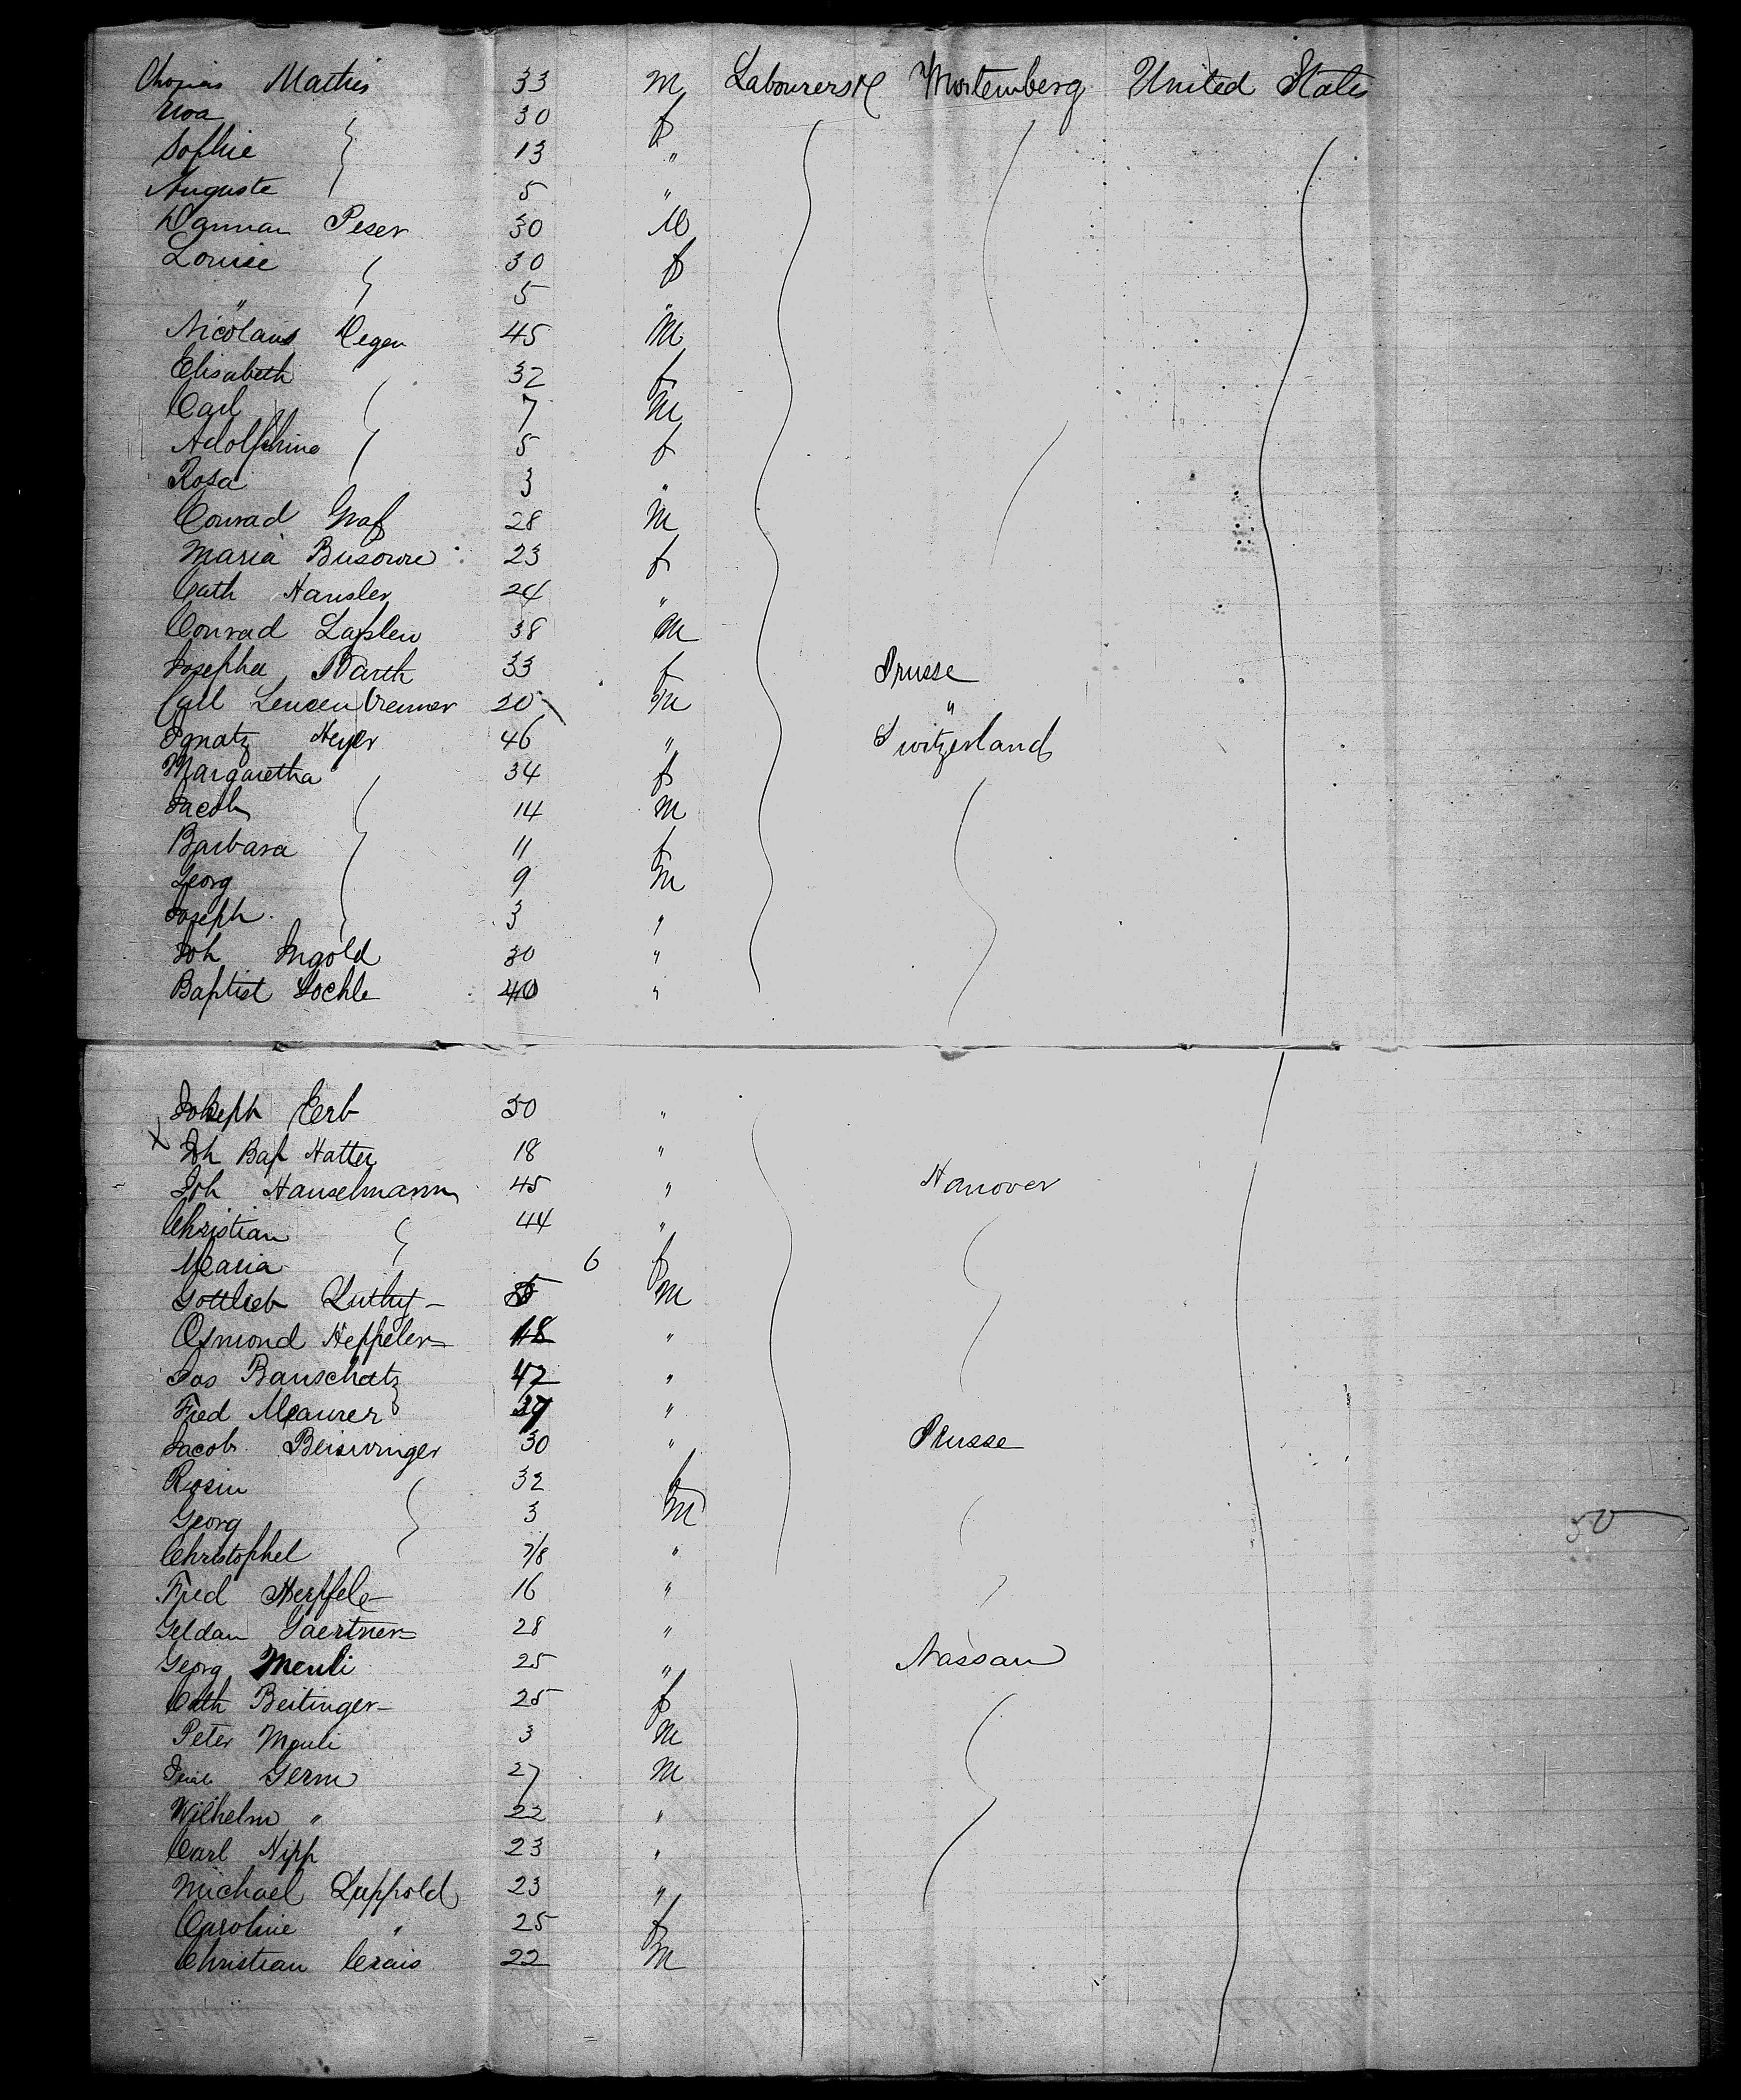 Thomas Mathis 33 M Labourers &c Wurtemberg United States
Noa 30 f
Sophie 13 "
Auguste 5 "
Damian Peser 30 M
Louise 30 f
" 5 "
Nicolaus Degen 45 M
Elisabeth 32 f
Carl 7 M
Adolphine 5 f
Rosa 3 "
Conrad Graf 28 M
Maria 23 f
Cath Hansler 24 "
Conrad 38 M
Josepha Barth 33 f Prusse
Carl 20 M "
Ignatz Heyer 46 " Switzerland
Margaretha 34 f
Jacob 14 M
Barbara 11 f
Georg 9 M
Joseph 3 "
Joh Ingold 30 "
Baptist Lochle 40 "
Joseph Erb 30 "
x Joh Bap Hatter 18 "
Joh Hanselmann 45 " Hanover
Christian 44 "
Maria 6 f
Gottlieb Luthy M
Osmond Heppeler 18 "
Jos Banschatz 42 "
Fred Maurer 37 "
Jacob Beiswinger 30 " Prusse
Rosin 32 f
Georg 3 M
Christophel 7/8 "
Fred Herpfele 16 "
Geldan Gaertner 28 "
Georg Meuli 25 " Nassau
Cath Beitinger 25 f
Peter Meuli 3 M
Germ 27 M
Wilhelm " 22 "
Carl Nipp 23 "
Michael Luppold 23 "
Caroline " 25 f
Christian 22 M
50